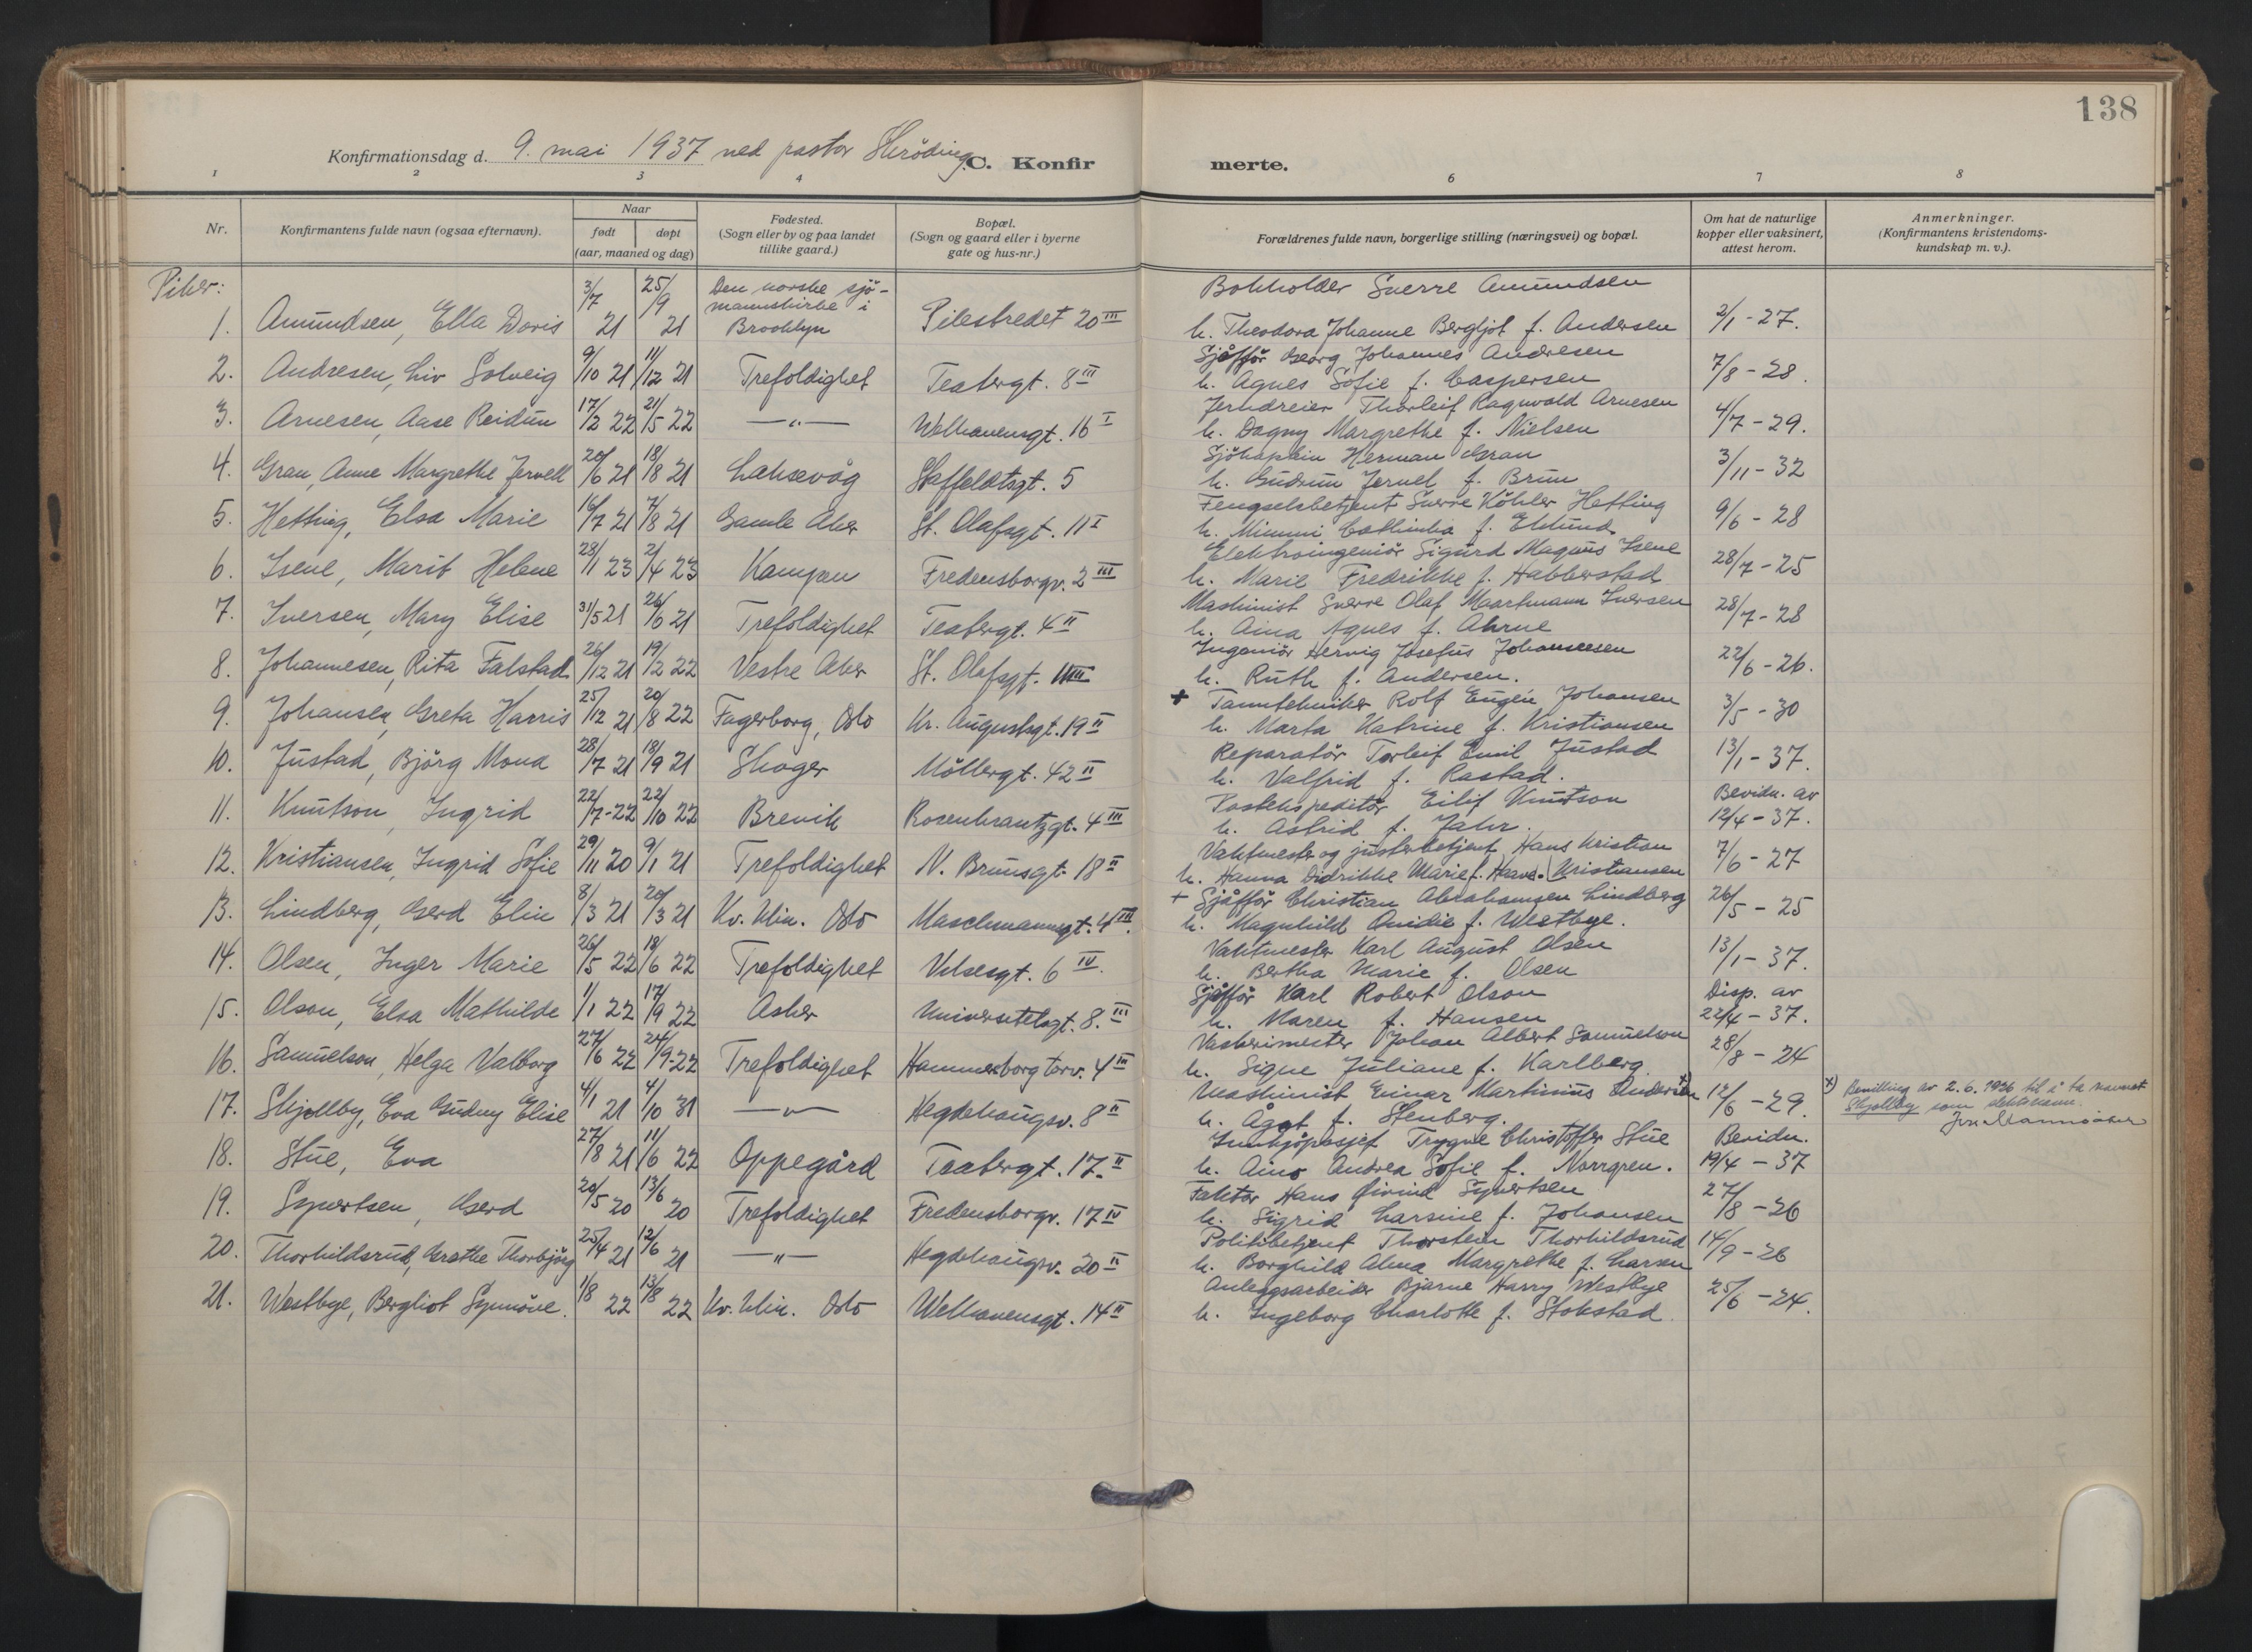 138
Konfirmationsdag d. 9. mai 1937 ved pastor Skröding. C. Konfir merte.
1 2 3 4 6 7 8
Nr. Konfirmantens fulde navn (ogsaa efternavn). Naar født døpt (aar, maaned og dag) Fødested. (Sogn eller by og paa landet tillike gaard.) Bopæl. (Sogn og gaard eller i byerne gate og hus-nr.) Forældrenes fulde navn, borgerlige stilling (næringsvei) og bopæl. Om hat de naturlige kopper eller vaksinert, attest herom. Anmerkninger. (Konfirmantens kristendoms- kundskap m. v.).
Piker:
1. Amundsen, Ella Doris 3/7 21 25/9 21 Den norske sjö- mannskirke i Brooklyn Pilestredet 20 III Bokholder Sverre Amundsen h. Theodora Johanne Bergljot f. Andersen 2/1 - 27.
2. Andresen, Liv Solveig 9/10 21 11/12 21 Trefoldighet Teatergt. 8 III Sjåfför Georg Johannes Andresen h. Agnes Sofie f. Caspersen 7/8 - 28.
3. Arnesen, Aase Reidun 17/2 22 21/5 22 —"— Welhavensgt. 16 I Jerndreier Thorleif Ragnvald Arnesen h. Dagny Margrethe f. Nielsen 4/7 - 29.
4. Gran, Anne Margrethe Jervell 20/6 21 18/8 21 Laksevåg Staffeldtsgt. 5 Sjökaptein Herman Gran h. Gudrun Jervel f. Brun 3/11 - 32
5. Hetting, Elsa Marie 16/7 21 7/8 21 Gamle Aker St. Olafsgt. 11 I Fengselsbetjent Sverre Köhler Hetting h. Mimmi Cathinka f. Eklund 9/6 - 28
6. Isene, Marit Helene 28/1 23 2/4 23 Kampen Fredensborgv. 2 III Elektroingeniör Sigurd Magnus Isene h. Marie Fredrikke f. Habberstad 28/7 - 25
7. Iversen, Mary Elise 31/5 21 26/6 21 Trefoldighet Teatergt. 4 II Maskinist Sverre Olaf Maartmann Iversen h. Aina Agnes f. Ahrne 28/7 - 28
8. Johannesen, Rita Falstad 26/12 21 19/2 22 Vestre Aker St. Olafsgt. Ingeniör Hervig Josefus Johannesen h. Ruth f. Andersen. 22/6 - 26.
9. Johansen, Greta Harris 25/12 21 20/8 22 Fagerborg, Oslo Kr. Augustsgt. 19 II + Tanntekniker Rolf Eugén Johansen h. Marta Katrine f. Kristiansen 3/5 - 30
10. Justad, Björg Mona 28/7 21 18/9 21 Skoger Möllergt. 42 II Reparatör Torleif Emil Justad h. Valfrid f. Rastad. 13/1 - 37.
11. Knutson, Ingrid 22/7 - 22 22/10 22 Brevik Rosenkrantzgt. 4 III Postekspeditör Eilif Knutson h. Astrid f. Jahr. Bevidn. av 12/4 - 37.
12. Kristiansen, Ingrid Sofie 29/11 20 9/1 21 Trefoldighet N. Brunsgt. 18 II Vaktmester og justerbetjent Hans Kristian Kristiansen h. Hanna Didrikke Marie f. 7/6 - 27
13. Lindberg, Gerd Elin 8/3 21 20/3 21 Kv. klin. Oslo Maschmannsgt. 4 III. + Sjåffôr Christian Abrahamsen Lindberg h. Magnhild Ovidie f. Westbye. 26/5 - 25
14. Olsen, Inger Marie 26/5 22 18/6 22 Trefoldighet 6 IV. Vaktmester Karl August Olsen h. Bertha Marie f. Olsen 13/1 - 37.
15. Olson, Elsa Mathilde 1/1 22 17/9 22 Asker Universitetsgt. 8. III Sjåffør Karl Robert Olson h. Maren f. Hansen Disp. av 22/4 - 37.
16. Samuelson, Helga Valborg 27/6 22 24/9 - 22 Trefoldighet Hammersborg torv. 4 III Vaskerimester Johan Albert Samuelson h. Signe Juliane f. Karlberg 28/8 - 24
17. Skjollby, Eva Gudny Elise 4/1 21 4/10 31 —"— Hegdehaugsv. 8 II Maskinist Einar Martinius Andersen x) h. Ågot f. Stenberg. 12/6 - 29. x) Bevilling av 2.6.1936 til å ta navnet Skjollby som slektsnavn.
18. Stue, Eva 27/8 21 11/6 22 Oppegård Teatergt. 17. II Innkjöpssjef Trygve Christoffer Stue h. Aino Andrea Sofie f. Norrgren. Bevidn. 19/4 - 37
19. Syvertsen, Gerd 20/5 20 13/6 20 Trefoldighet Fredensborgv. 17 IV Faktor Hans Öivind Syvertsen h. Sigrid Larsine f. Johansen 27/8 - 26
20. Thorkildsrud, Grethe Thorbjörg 25/4 21 12/6 21 —"— Hegdehaugsv. 20 II Politibetjent Thorstein Thorkildsrud h. Borghild Alma Margrethe f. Larsen 14/9 - 26
21. Westbye, Bergliot Synnöve. 1/8 22 13/8 22 Kv. klin. Oslo Welhavensgt. 14 II Anleggsarbeider Bjarne Harry Westbye h. Ingeborg Charlotte f. Stokstad. 25/6 - 24.